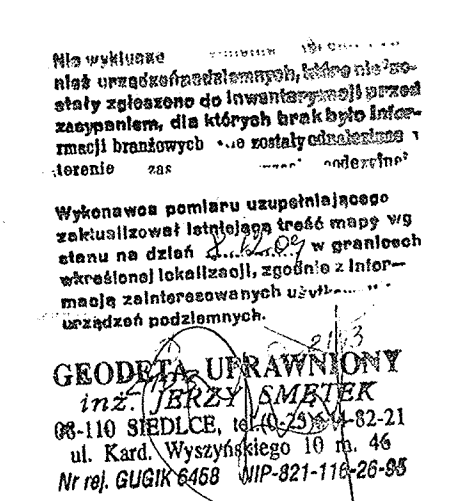 Nie wyklucza
nież urządzeń podziemnych, które nie zo-
stały zgłoszone do inwentaryzacji przed
zasypaniem, dla których brak było infor-
macji branżowych zostały odnalezione
terenie
Wykonawca pomiaru uzupełniającego
zaktualizował istniejącą treść mapy wg
stanu na dzień 8.12.09 w granicach
wkreślonej lokalizacji, zgodnie z infor-
macją zainteresowanych
urządzeń podziemnych.
GEODETA UPRAWNIONY
inż. JERZY SMĘTEK
08-110 SIEDLCE, tel. 82-21
ul. Kard. Wyszyńskiego 10 m. 46
Nr rej. GUGIK 6458 NIP-821-116-26-95